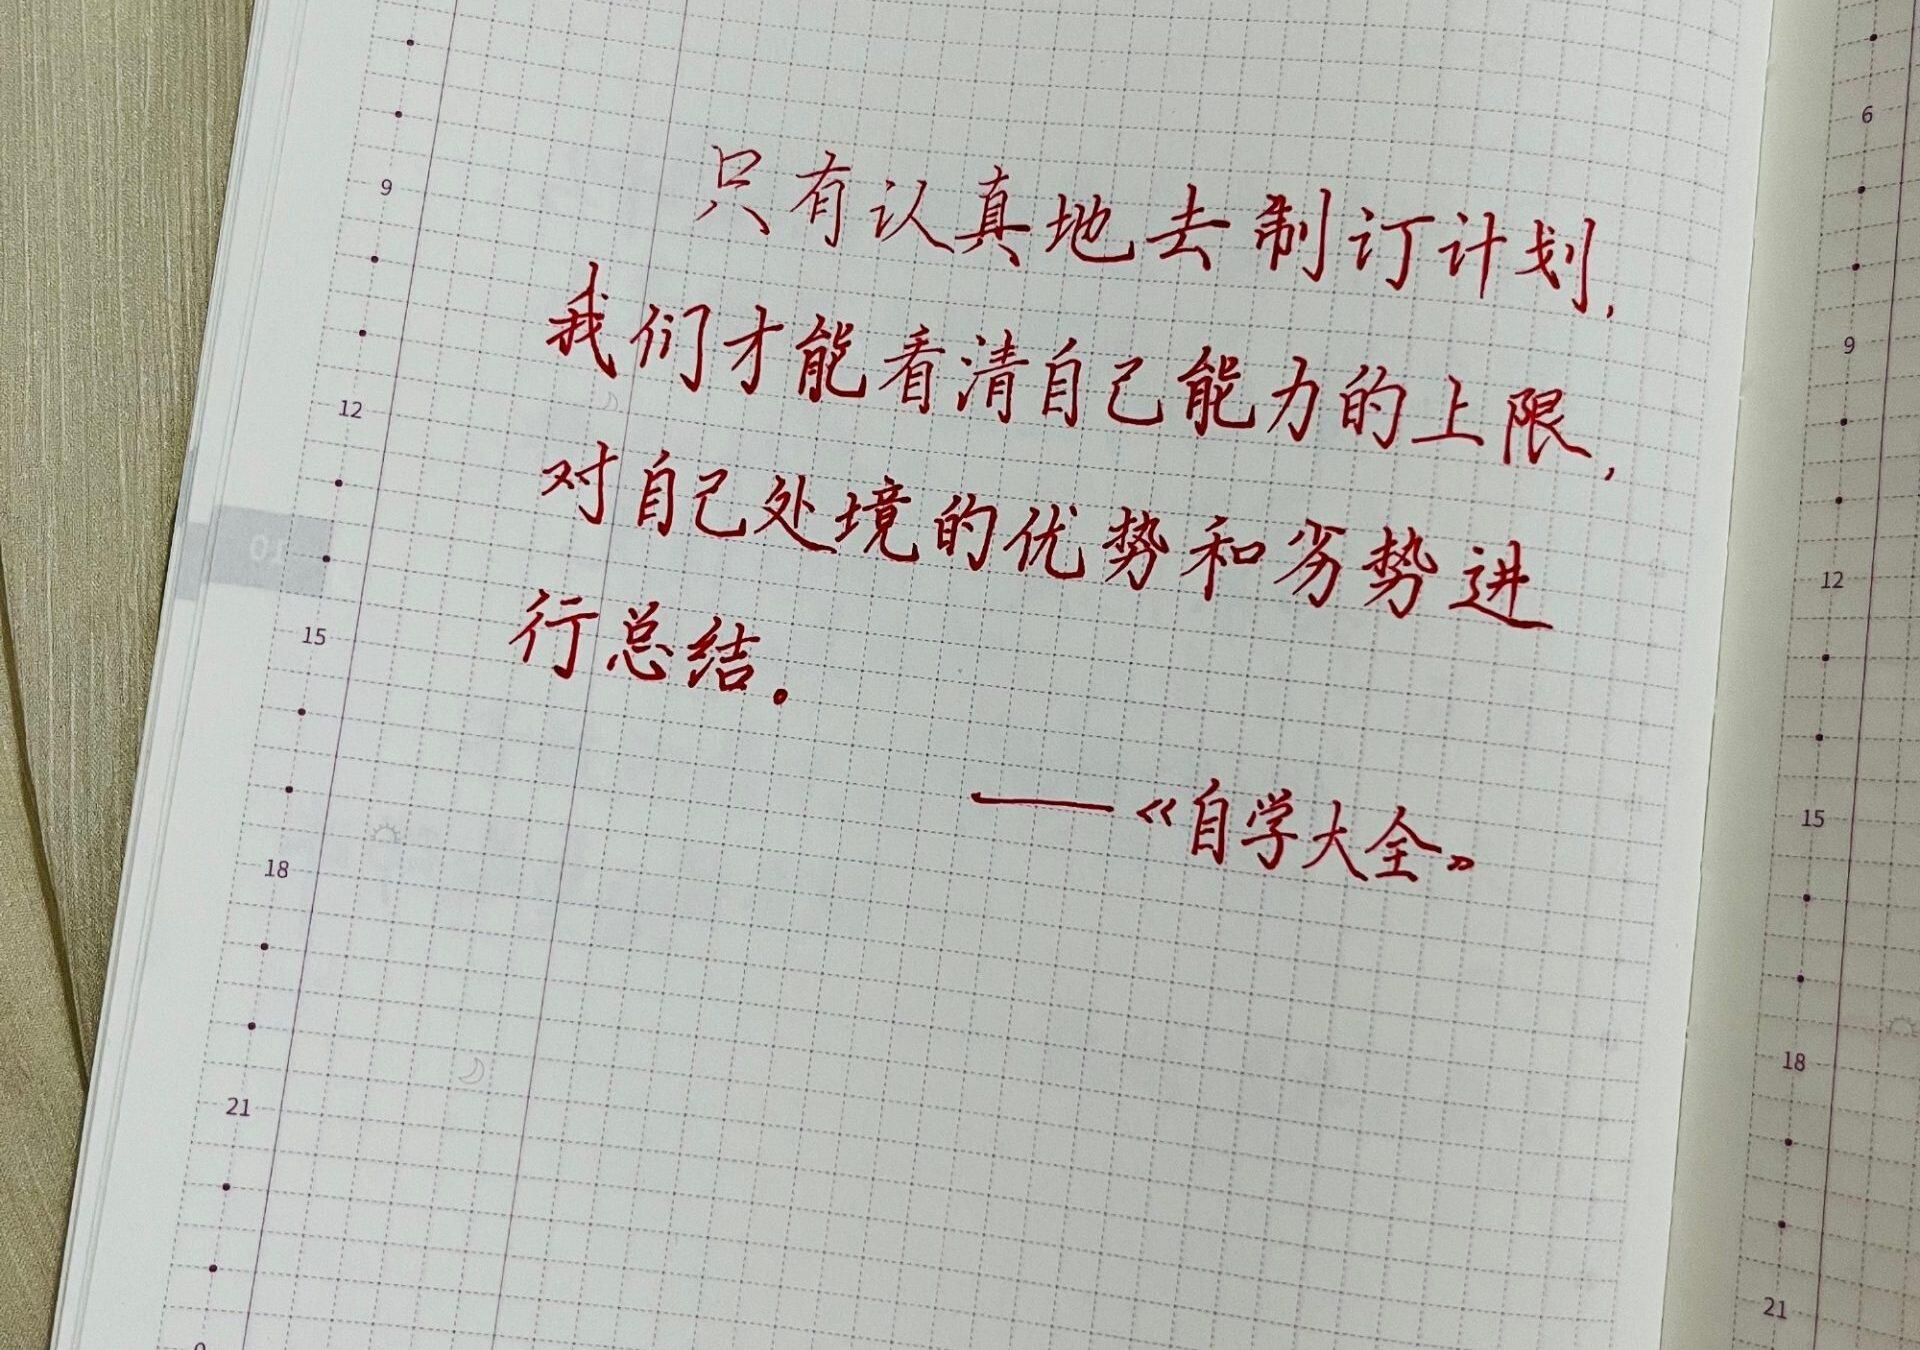 只有认真地去制订计划,
我们才能看清自己能力的上限,
对自己处境的优势和劣势进
行总结。
——《自学大全》
9
12
15
18
21
10
6
9
12
15
18
21